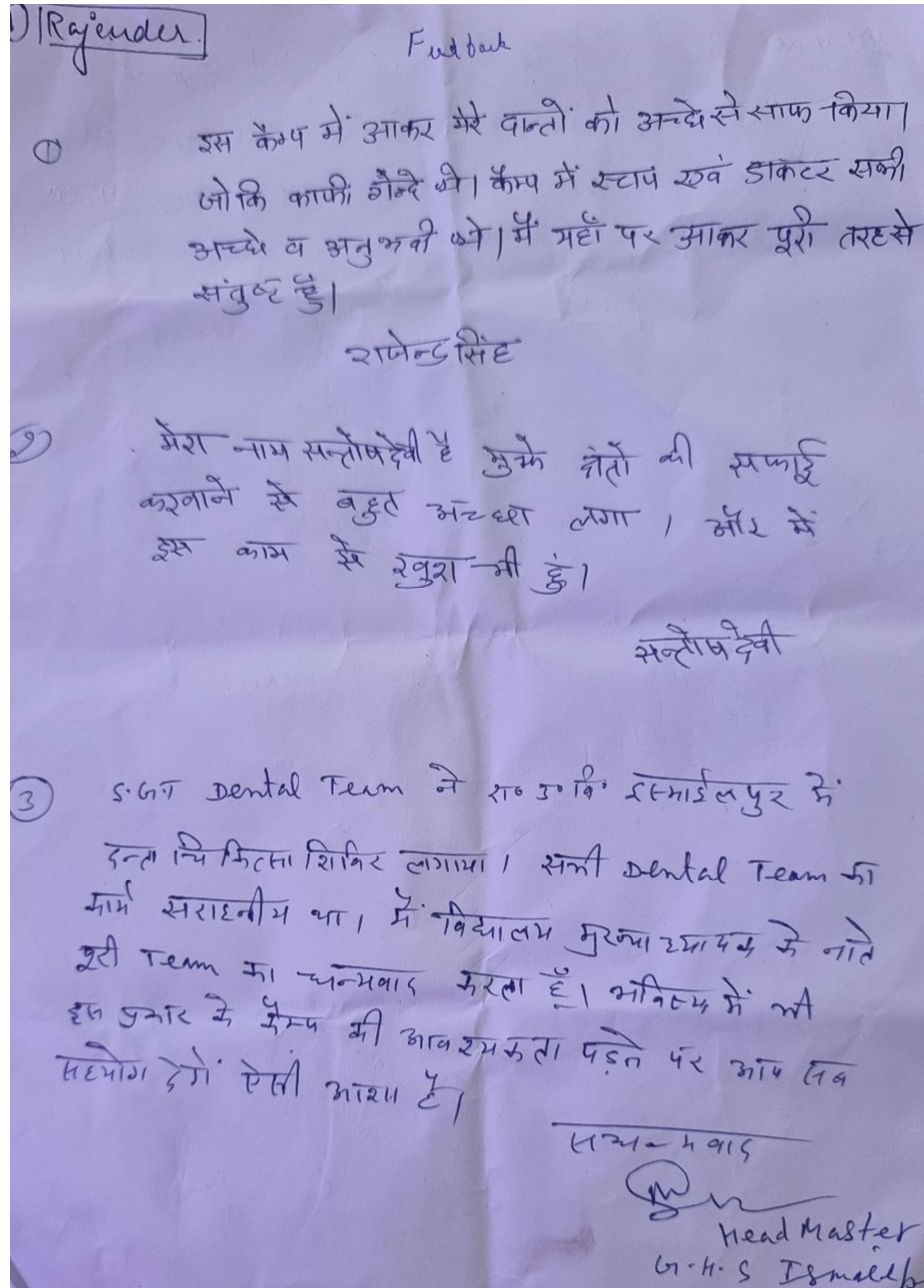 1) Rajender.
Feedback
① इस कैम्प में आकर मेरे दान्तों को अच्छे से साफ किया।
जोकि काफी गन्दे थे। कैम्प में स्टाफ एवं डाक्टर सभी
अच्छे व अनुभवी थे। मैं यहाँ पर आकर पूरी तरह से
संतुष्ट हूँ।
राजेन्द्र सिंह
2) मेरा नाम सन्तोष देवी है मुझे दांतों की सफाई
करवाने से बहुत अच्छा लगा, और में
इस काम से खुश भी हुं।
सन्तोष देवी
③ S.G.T Dental Team ने रा० उ० वि० इस्माईलपुर में
दन्त चिकित्सा शिविर लगाया। सभी Dental Team का
कार्य सराहनीय था। मैं विद्यालय मुख्याध्यापक के नाते
पूरी Team का धन्यवाद करता हूँ। भविष्य में भी
इस प्रकार के कैम्प की आवश्यकता पड़ने पर आप सब
सहयोग देगें ऐसी आशा है।
सधन्यवाद
Head Master
G.H.S